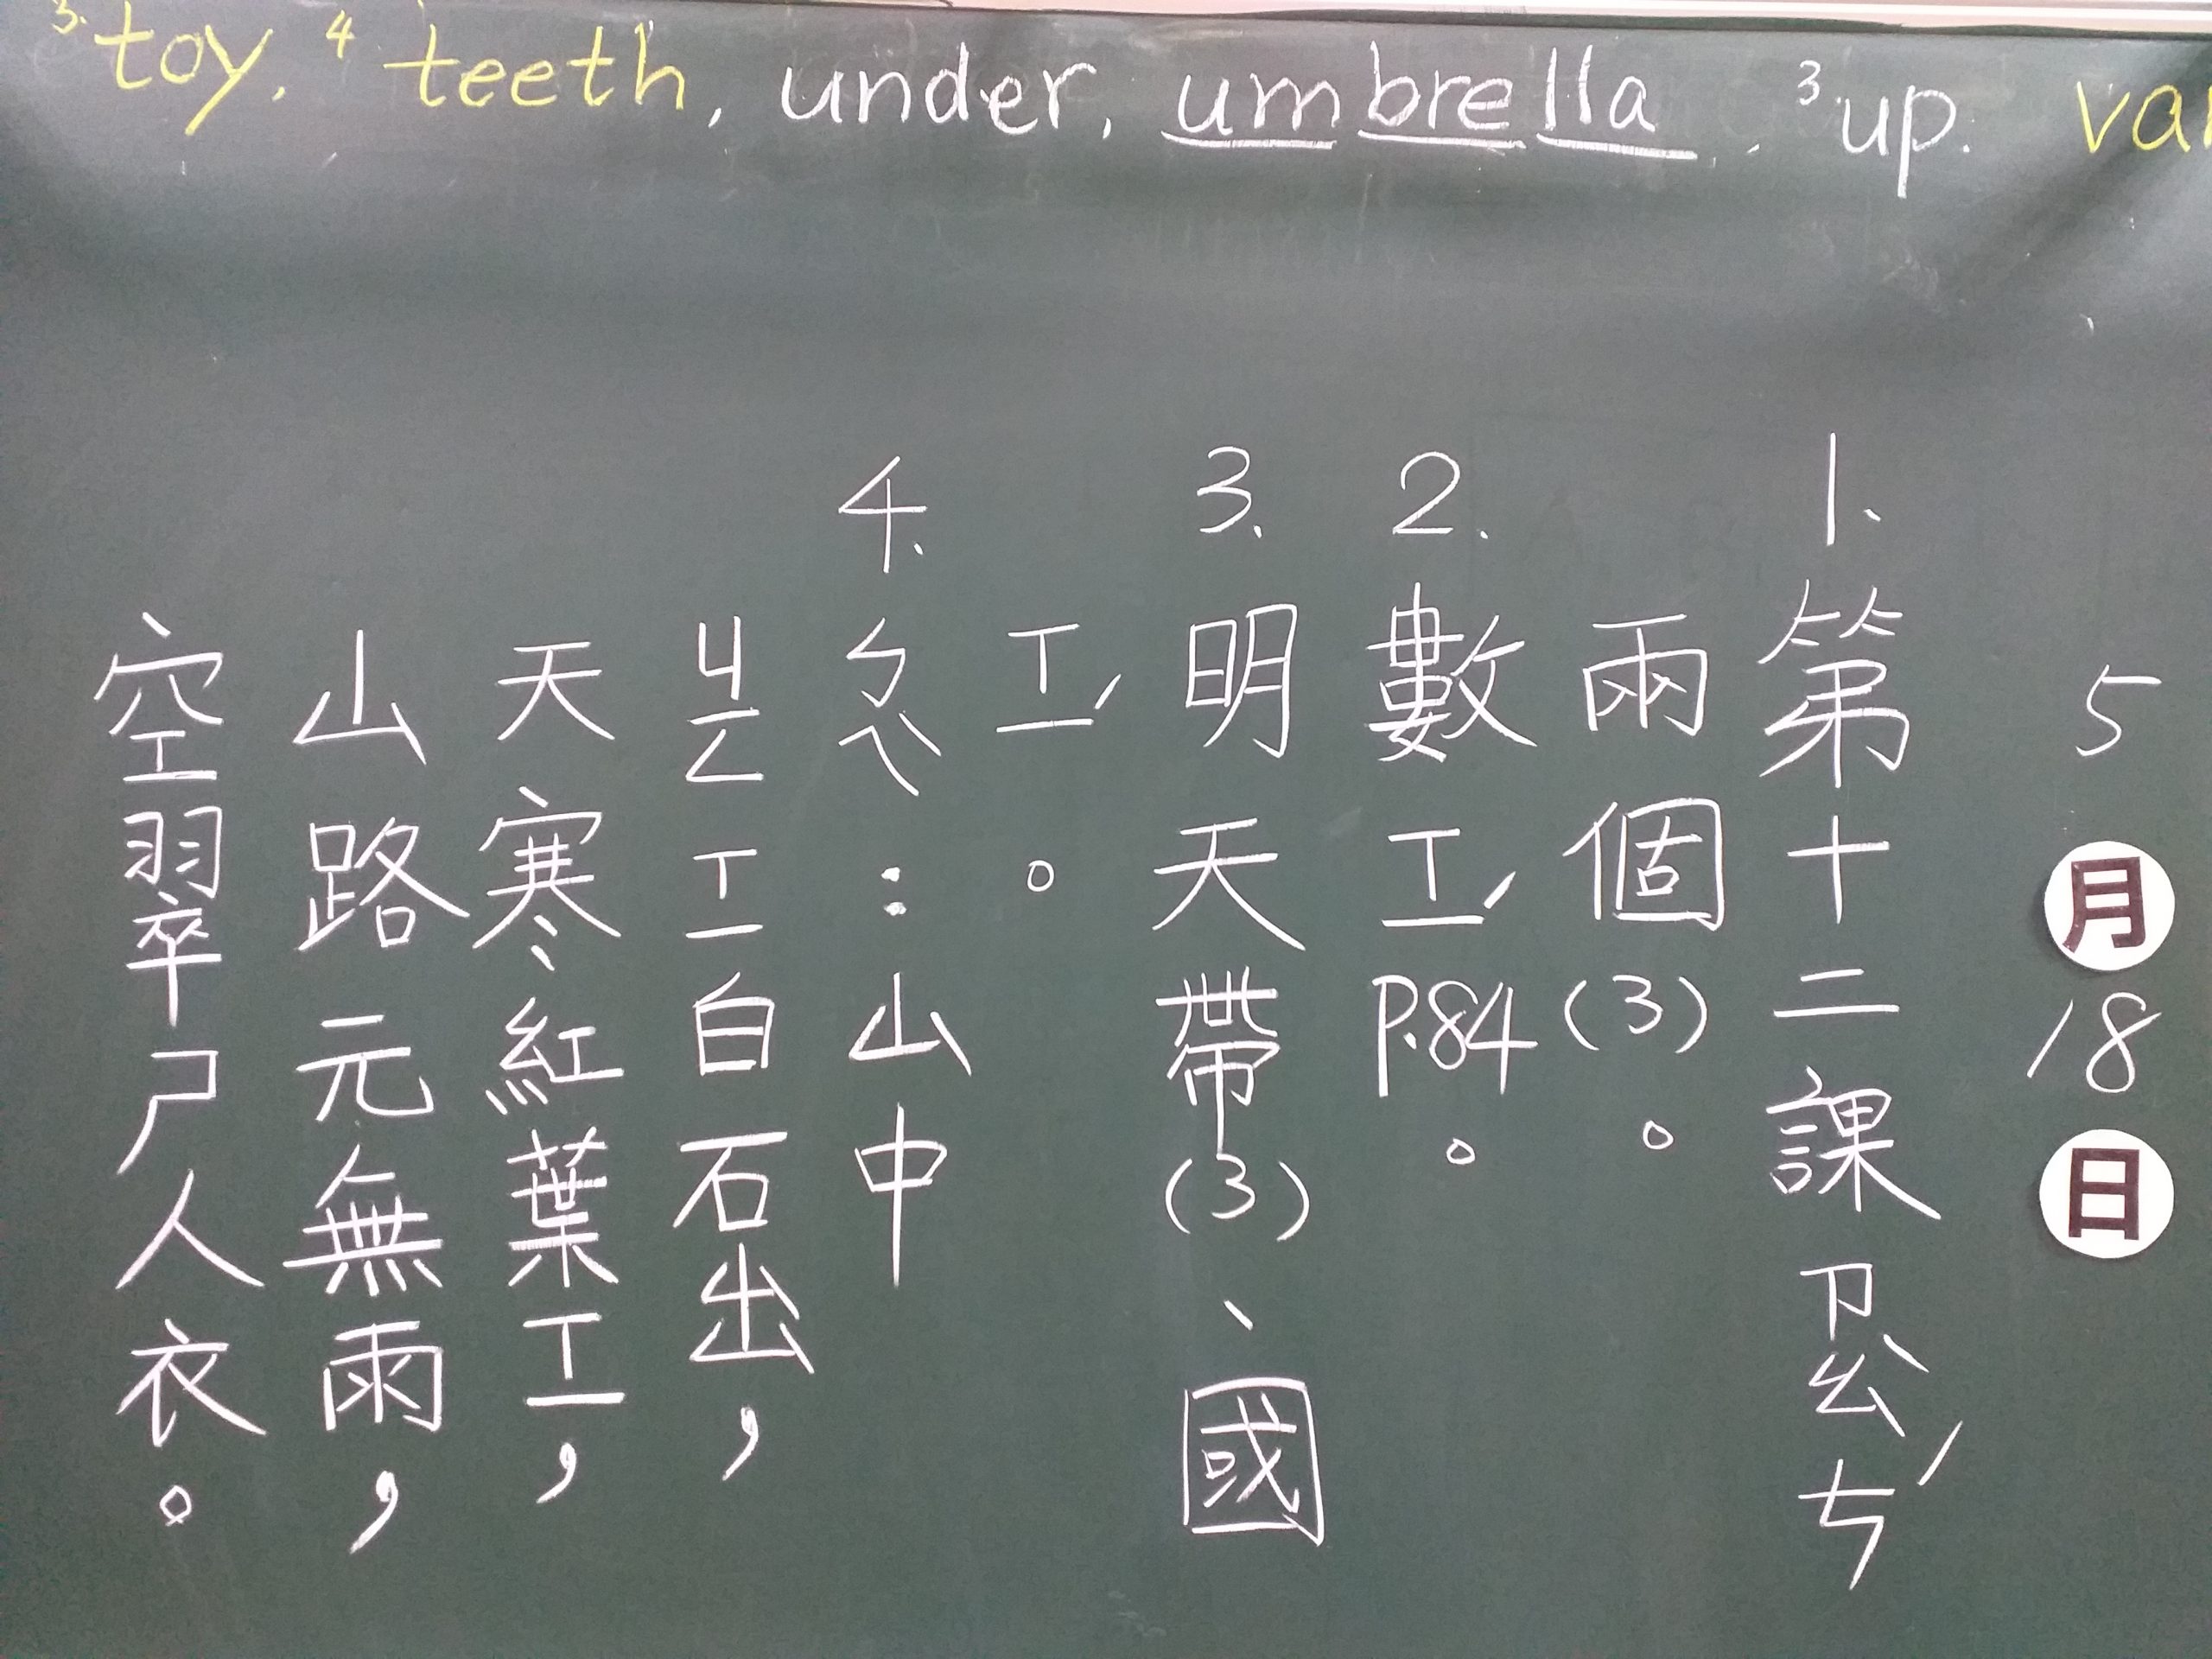 3. toy, 4 teeth, under, umbrella, 3. up.
5月18日
1.第十二課ㄗㄠˋㄘˊ
兩個(3)。
2.數ㄒㄧˊP.84。
3.明天帶(3)、國
ㄒㄧˊ。
4.ㄅㄟˋ：山中
ㄐㄧㄥㄒㄧ白石出，
天寒紅葉ㄒㄧ，
山路元無雨，
空翠ㄕ人衣。